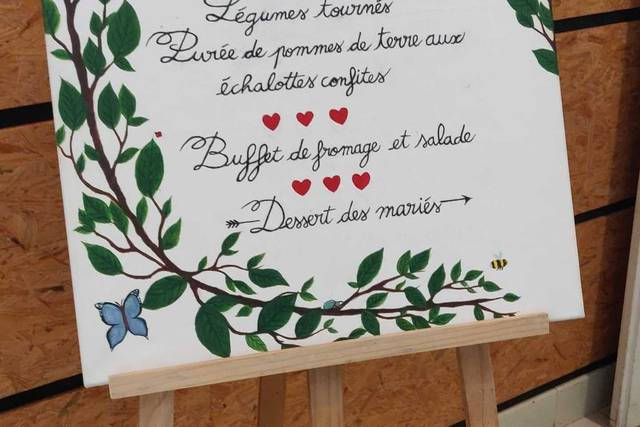 Légumes tournés
Purée de pommes de terre aux
échalottes confites
Buffet de fromage et salade
Dessert des mariés